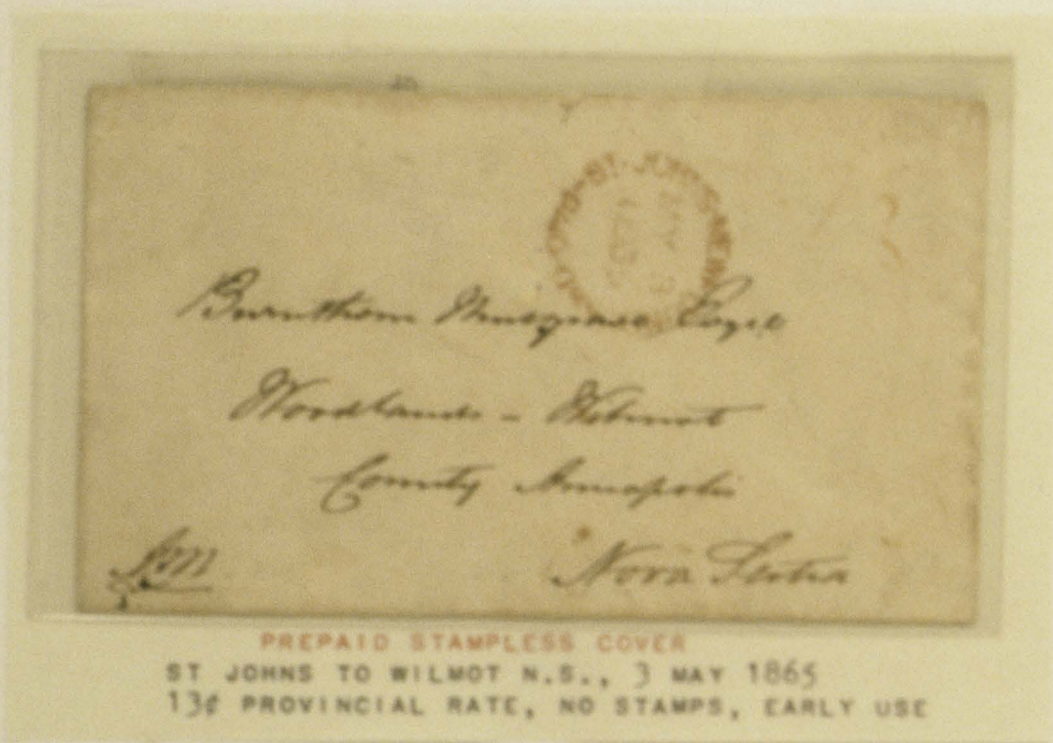 ST. JOHN'S NEW
MAY 3
Musgrave Esqre
Woodlands - Wilmot
County Annapolis
Nova Scotia
PREPAID STAMPLESS COVER
ST JOHNS TO WILMOT N.S., 3 MAY 1865
13¢ PROVINCIAL RATE, NO STAMPS, EARLY USE